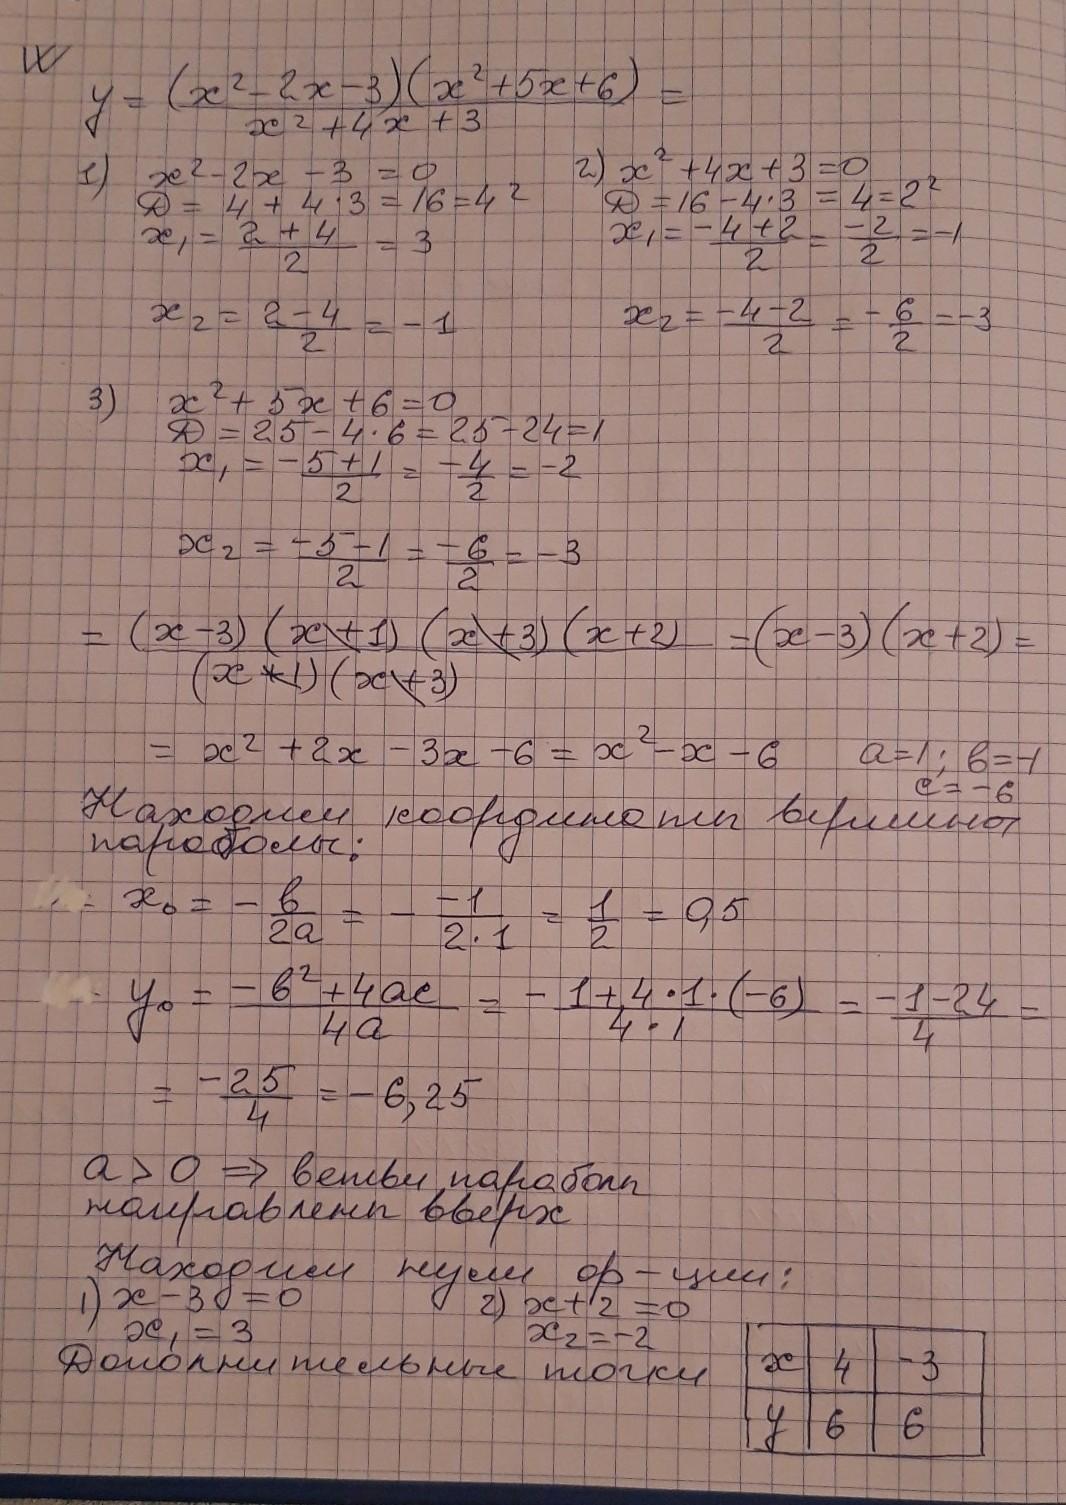 W
y = (x² - 2x - 3)(x² + 5x + 6) / x² + 4x + 3 =
1) x² - 2x - 3 = 0 2) x² + 4x + 3 = 0
Д = 4 + 4·3 = 16 = 4² Д = 16 - 4·3 = 4 = 2²
x₁ = 2 + 4 / 2 = 3 x₁ = -4 + 2 / 2 = -2 / 2 = -1
x₂ = 2 - 4 / 2 = -1 x₂ = -4 - 2 / 2 = -6 / 2 = -3
3) x² + 5x + 6 = 0
Д = 25 - 4·6 = 25 - 24 = 1
x₁ = -5 + 1 / 2 = -4 / 2 = -2
x₂ = -5 - 1 / 2 = -6 / 2 = -3
= (x - 3)(x + 1)(x + 3)(x + 2) / (x + 1)(x + 3) = (x - 3)(x + 2) =
= x² + 2x - 3x - 6 = x² - x - 6 a = 1; в = -1
c = -6
Находим координаты вершины
параболы:
x₀ = - в / 2a = - -1 / 2·1 = 1 / 2 = 0,5
y₀ = -в² + 4ac / 4a = - 1 + 4·1·(-6) / 4·1 = -1 - 24 / 4 =
= -25 / 4 = -6,25
a > 0 ⇒ ветви параболы
направлены вверх
Находим нули ф-ции:
1) x - 3 = 0 2) x + 2 = 0
x₁ = 3 x₂ = -2
Дополнительные точки
x 4 -3
y 6 6